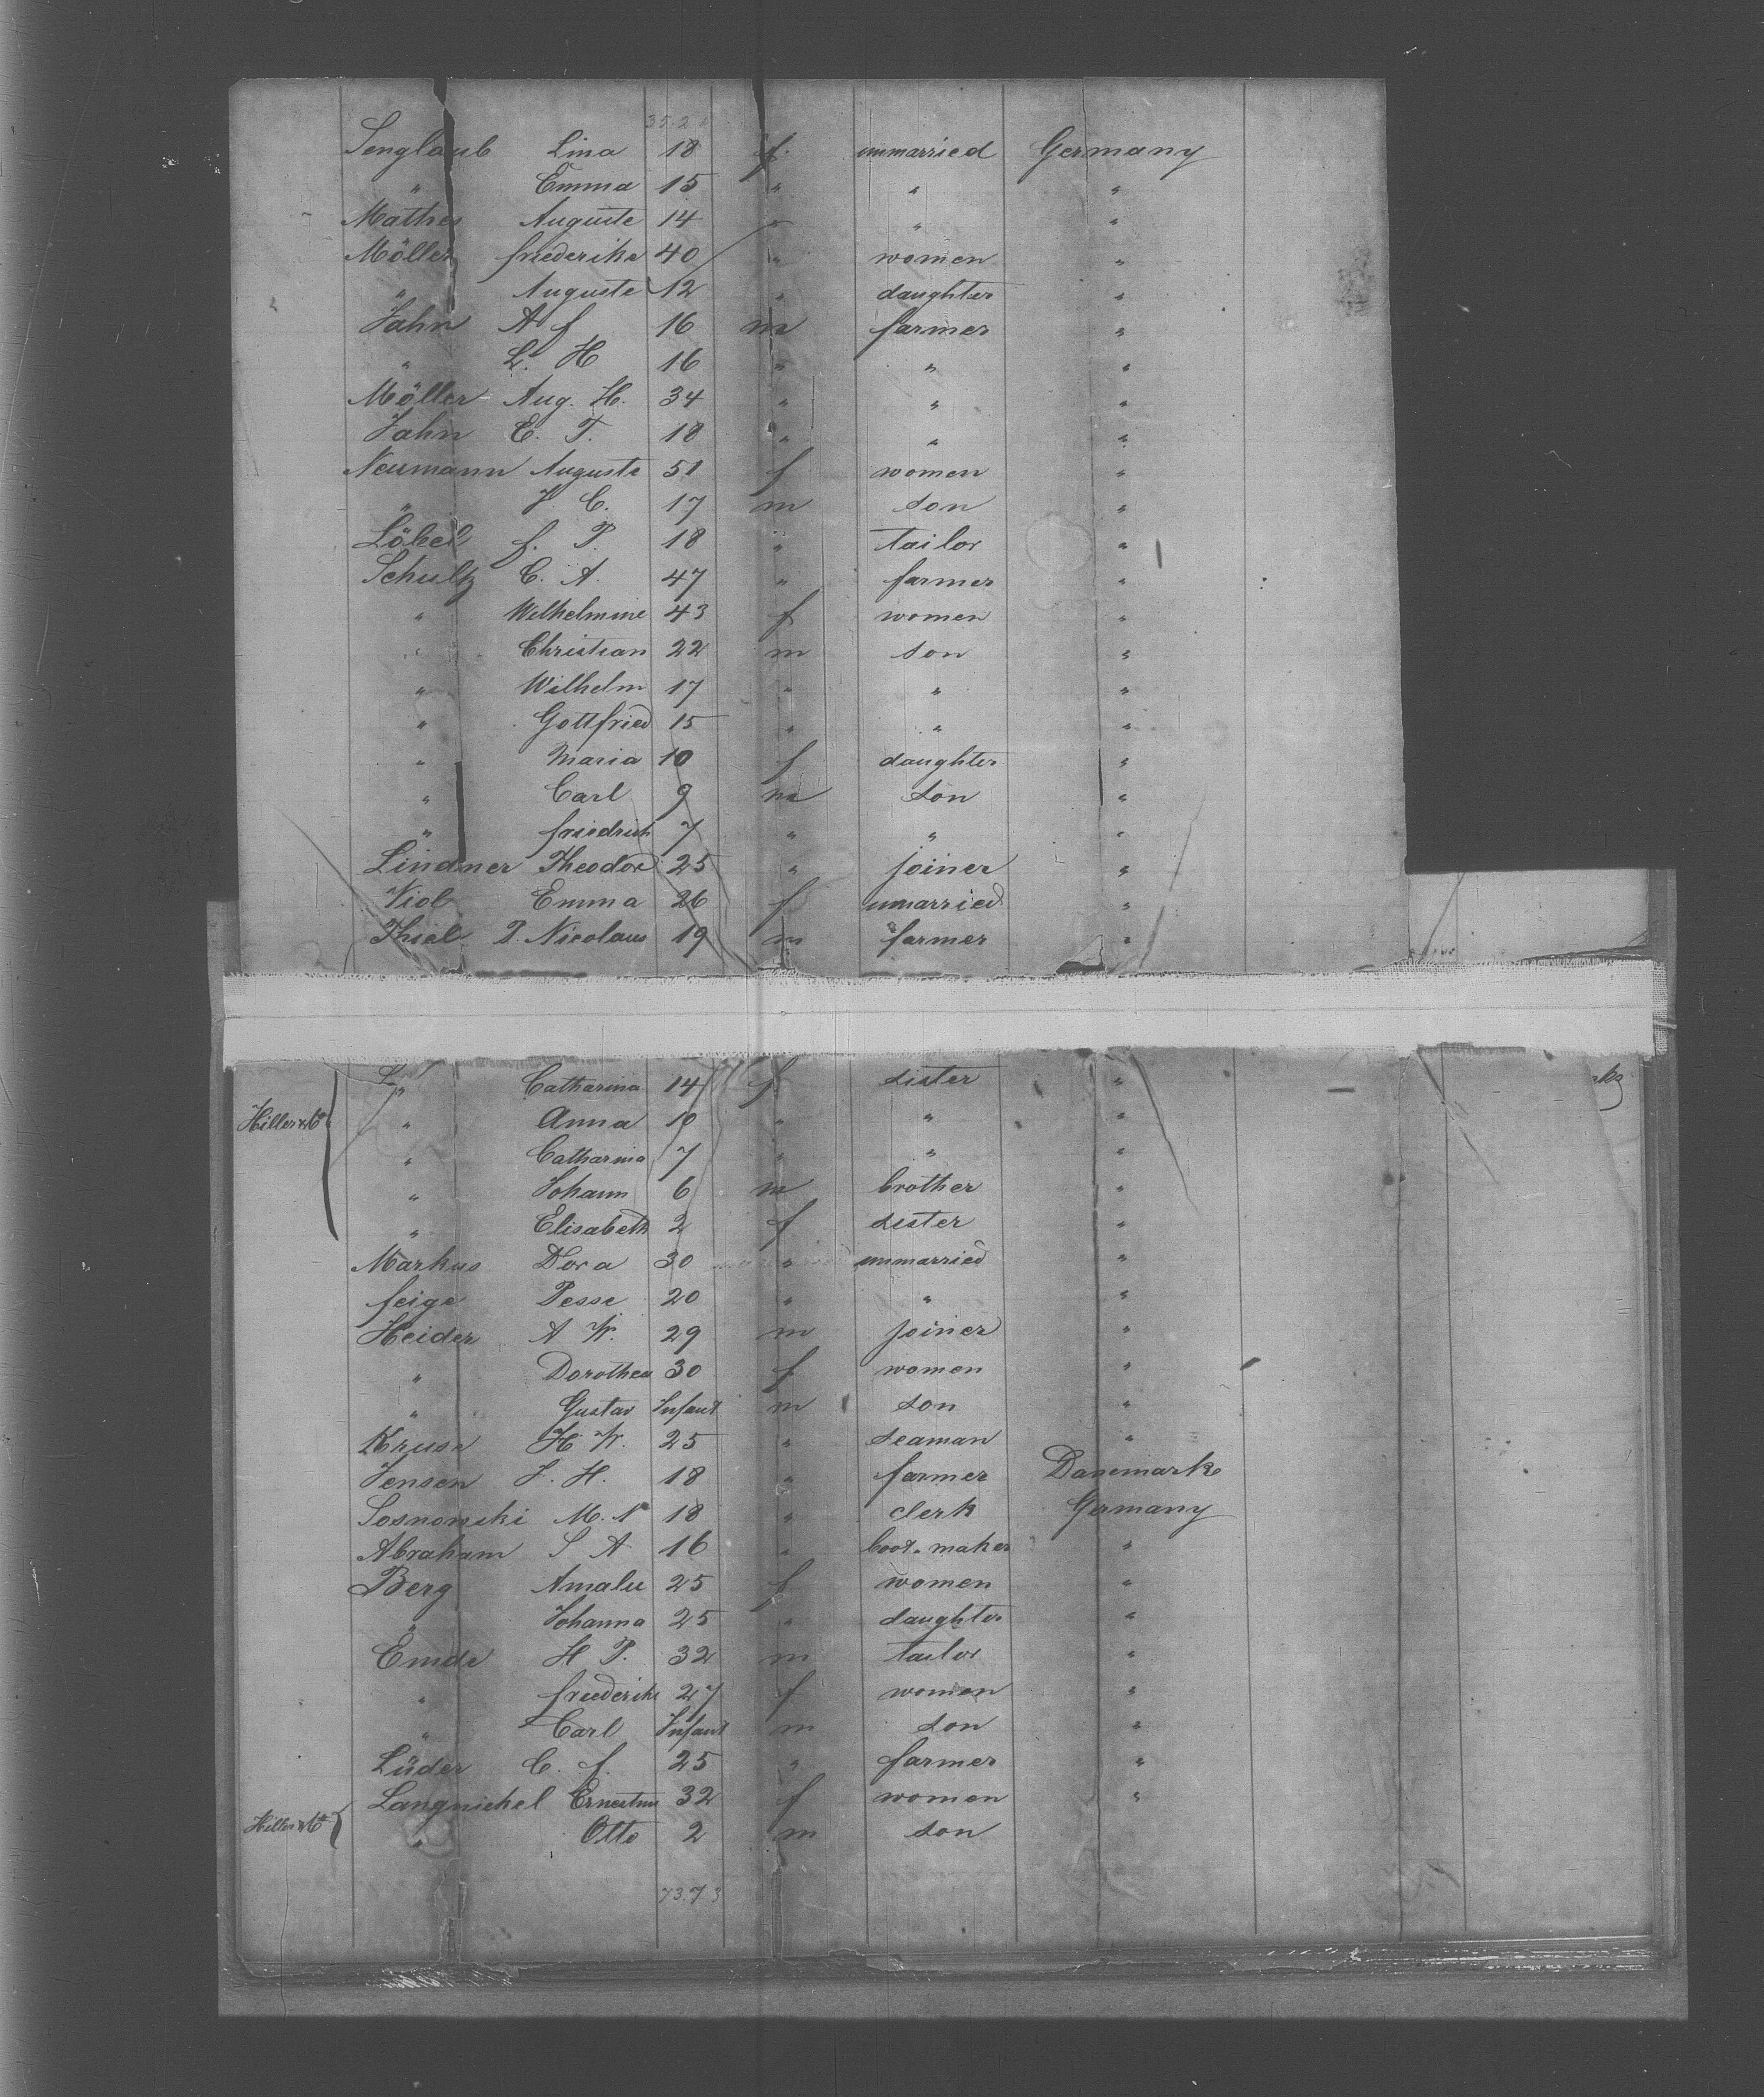 35.2
Senglaub Lina 18 f. unmarried Germany
" Emma 15 " " "
Mathes Auguste 14 " " "
Möller friederike 40 " women "
" Auguste 12 " daughter "
Jahn A f 16 m farmer "
" L. H 16 " " "
Möller Aug. H. 34 " " "
Jahn E. T. 18 " " "
Neumann Auguste 51 f women "
" J. C. 17 m son "
Löbel f. P. 18 " tailor "
Schultz C. A. 47 " farmer "
" Wilhelmine 43 f women "
" Christian 22 m son "
" Wilhelm 17 " " "
" Gottfried 15 " " "
" Maria 10 f daughter "
" Carl 9 m son "
" friedrich 7 " " "
Lindner Theodor 25 " joiner "
Viol Emma 26 f unmarried "
Thiel P. Nicolaus 19 m farmer "
" Catharina 14 f sister "
Hiller & Co " Anna 10 " " "
" Catharina 7 " " "
" Johann 6 m brother "
" Elisabeth 2 f sister "
Markus Dora 30 " unmarried "
feige Pesse 20 " " "
Heider A W. 29 m joiner "
" Dorothea 30 f women "
" Gustav Infant m son "
Kruse H. W. 25 " seaman "
Jensen J. H. 18 " farmer Danemark
Sosnonski M. 18 " clerk Germany
Abraham S A 16 " boot-maker "
Berg Amalie 25 f women "
" Johanna 25 " daughter "
Emde H P. 32 m tailor "
" friederike 27 f women "
" Carl Infant m son "
Lüder C. f. 25 " farmer "
Langnickel Ernestine 32 f women "
Hiller & Co " Otto 2 m son
73.73